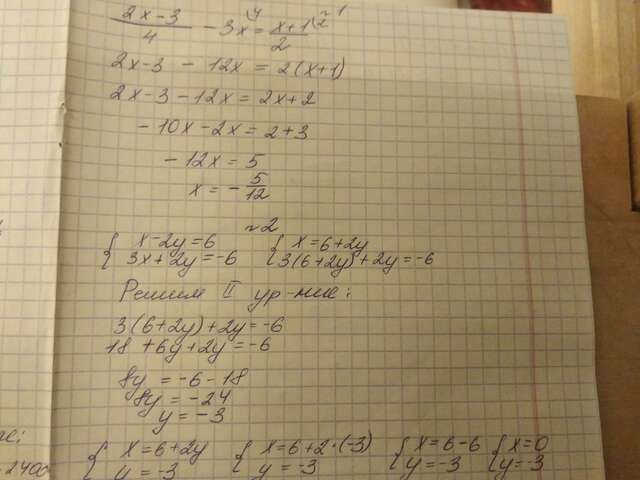 №1
(2x-3)/4 - 3x \4 = (x+1)/2 \2
2x-3 - 12x = 2(x+1)
2x-3-12x = 2x+2
-10x-2x = 2+3
-12x = 5
x = -5/12
№2
{ x-2y=6 { x=6+2y
{ 3x+2y=-6 { 3(6+2y)+2y=-6
Решим II ур-ние:
3(6+2y)+2y=-6
18+6y+2y=-6
8y = -6-18
8y = -24
y = -3
{ x=6+2y { x=6+2·(-3) { x=6-6 { x=0
{ y=-3 { y=-3 { y=-3 { y=-3
2400